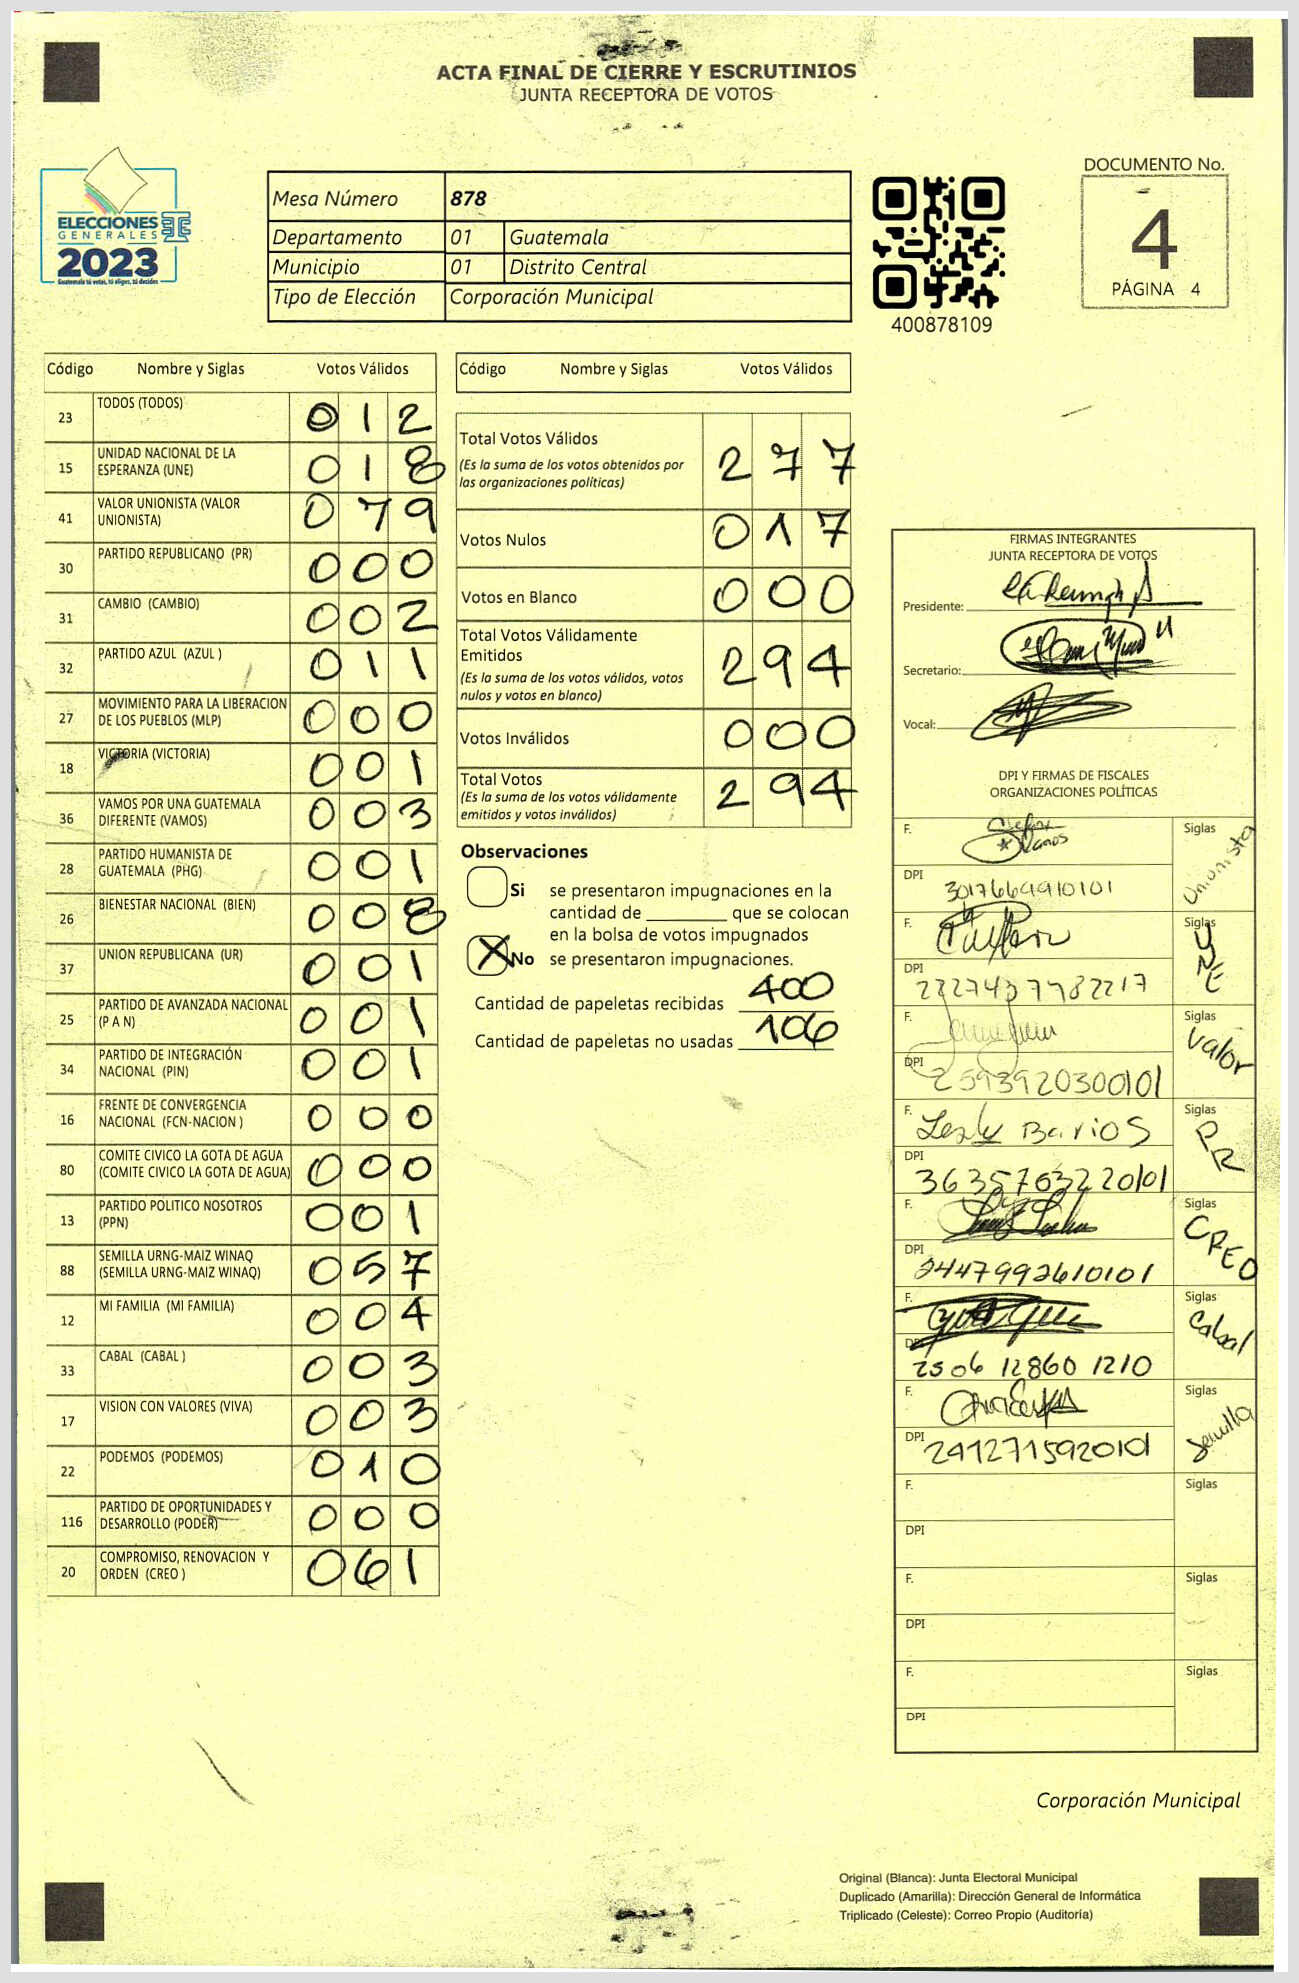 ACTA FINAL DE CIERRE Y ESCRUTINIOS
JUNTA RECEPTORA DE VOTOS
ELECCIONES
GENERALES
2023
Guatemala tú votas, tú eliges, tú decides
Mesa Número 878
Departamento 01 Guatemala
Municipio 01 Distrito Central
Tipo de Elección Corporación Municipal
400878109
DOCUMENTO No.
4
PÁGINA 4
Código Nombre y Siglas Votos Válidos
23 TODOS (TODOS) 0 1 2
15 UNIDAD NACIONAL DE LA
ESPERANZA (UNE) 0 1 8
41 VALOR UNIONISTA (VALOR
UNIONISTA) 0 7 9
30 PARTIDO REPUBLICANO (PR) 0 0 0
31 CAMBIO (CAMBIO) 0 0 2
32 PARTIDO AZUL (AZUL ) 0 1 1
27 MOVIMIENTO PARA LA LIBERACION
DE LOS PUEBLOS (MLP) 0 0 0
18 VICTORIA (VICTORIA) 0 0 1
36 VAMOS POR UNA GUATEMALA
DIFERENTE (VAMOS) 0 0 3
28 PARTIDO HUMANISTA DE
GUATEMALA (PHG) 0 0 1
26 BIENESTAR NACIONAL (BIEN) 0 0 8
37 UNION REPUBLICANA (UR) 0 0 1
25 PARTIDO DE AVANZADA NACIONAL
(P A N) 0 0 1
34 PARTIDO DE INTEGRACIÓN
NACIONAL (PIN) 0 0 1
16 FRENTE DE CONVERGENCIA
NACIONAL (FCN-NACION ) 0 0 0
80 COMITE CIVICO LA GOTA DE AGUA
(COMITE CIVICO LA GOTA DE AGUA) 0 0 0
13 PARTIDO POLITICO NOSOTROS
(PPN) 0 0 1
88 SEMILLA URNG-MAIZ WINAQ
(SEMILLA URNG-MAIZ WINAQ) 0 5 7
12 MI FAMILIA (MI FAMILIA) 0 0 4
33 CABAL (CABAL ) 0 0 3
17 VISION CON VALORES (VIVA) 0 0 3
22 PODEMOS (PODEMOS) 0 1 0
116 PARTIDO DE OPORTUNIDADES Y
DESARROLLO (PODER) 0 0 0
20 COMPROMISO, RENOVACION Y
ORDEN (CREO ) 0 6 1
Código Nombre y Siglas Votos Válidos
Total Votos Válidos 2 7 7
(Es la suma de los votos obtenidos por
las organizaciones políticas)
Votos Nulos 0 1 7
Votos en Blanco 0 0 0
Total Votos Válidamente
Emitidos 2 9 4
(Es la suma de los votos válidos, votos
nulos y votos en blanco)
Votos Inválidos 0 0 0
Total Votos 2 9 4
(Es la suma de los votos válidamente
emitidos y votos inválidos)
Observaciones
Si se presentaron impugnaciones en la
cantidad de ________ que se colocan
en la bolsa de votos impugnados
X No se presentaron impugnaciones.
Cantidad de papeletas recibidas 400
Cantidad de papeletas no usadas 106
FIRMAS INTEGRANTES
JUNTA RECEPTORA DE VOTOS
Presidente:
Secretario:
Vocal:
DPI Y FIRMAS DE FISCALES
ORGANIZACIONES POLÍTICAS
F. Siglas Unionista
DPI 3017664910101
F. Siglas UNE
DPI
F. Siglas Valor
DPI 2593920300101
F. Lesly Barrios Siglas PR
DPI 3635703220101
F. Siglas CREO
DPI 2447992610101
F. Siglas Cabal
DPI 2506 12860 1210
F. Siglas Semilla
DPI 2412715920101
F. Siglas
DPI
F. Siglas
DPI
F. Siglas
DPI
Corporación Municipal
Original (Blanca): Junta Electoral Municipal
Duplicado (Amarilla): Dirección General de Informática
Triplicado (Celeste): Correo Propio (Auditoría)